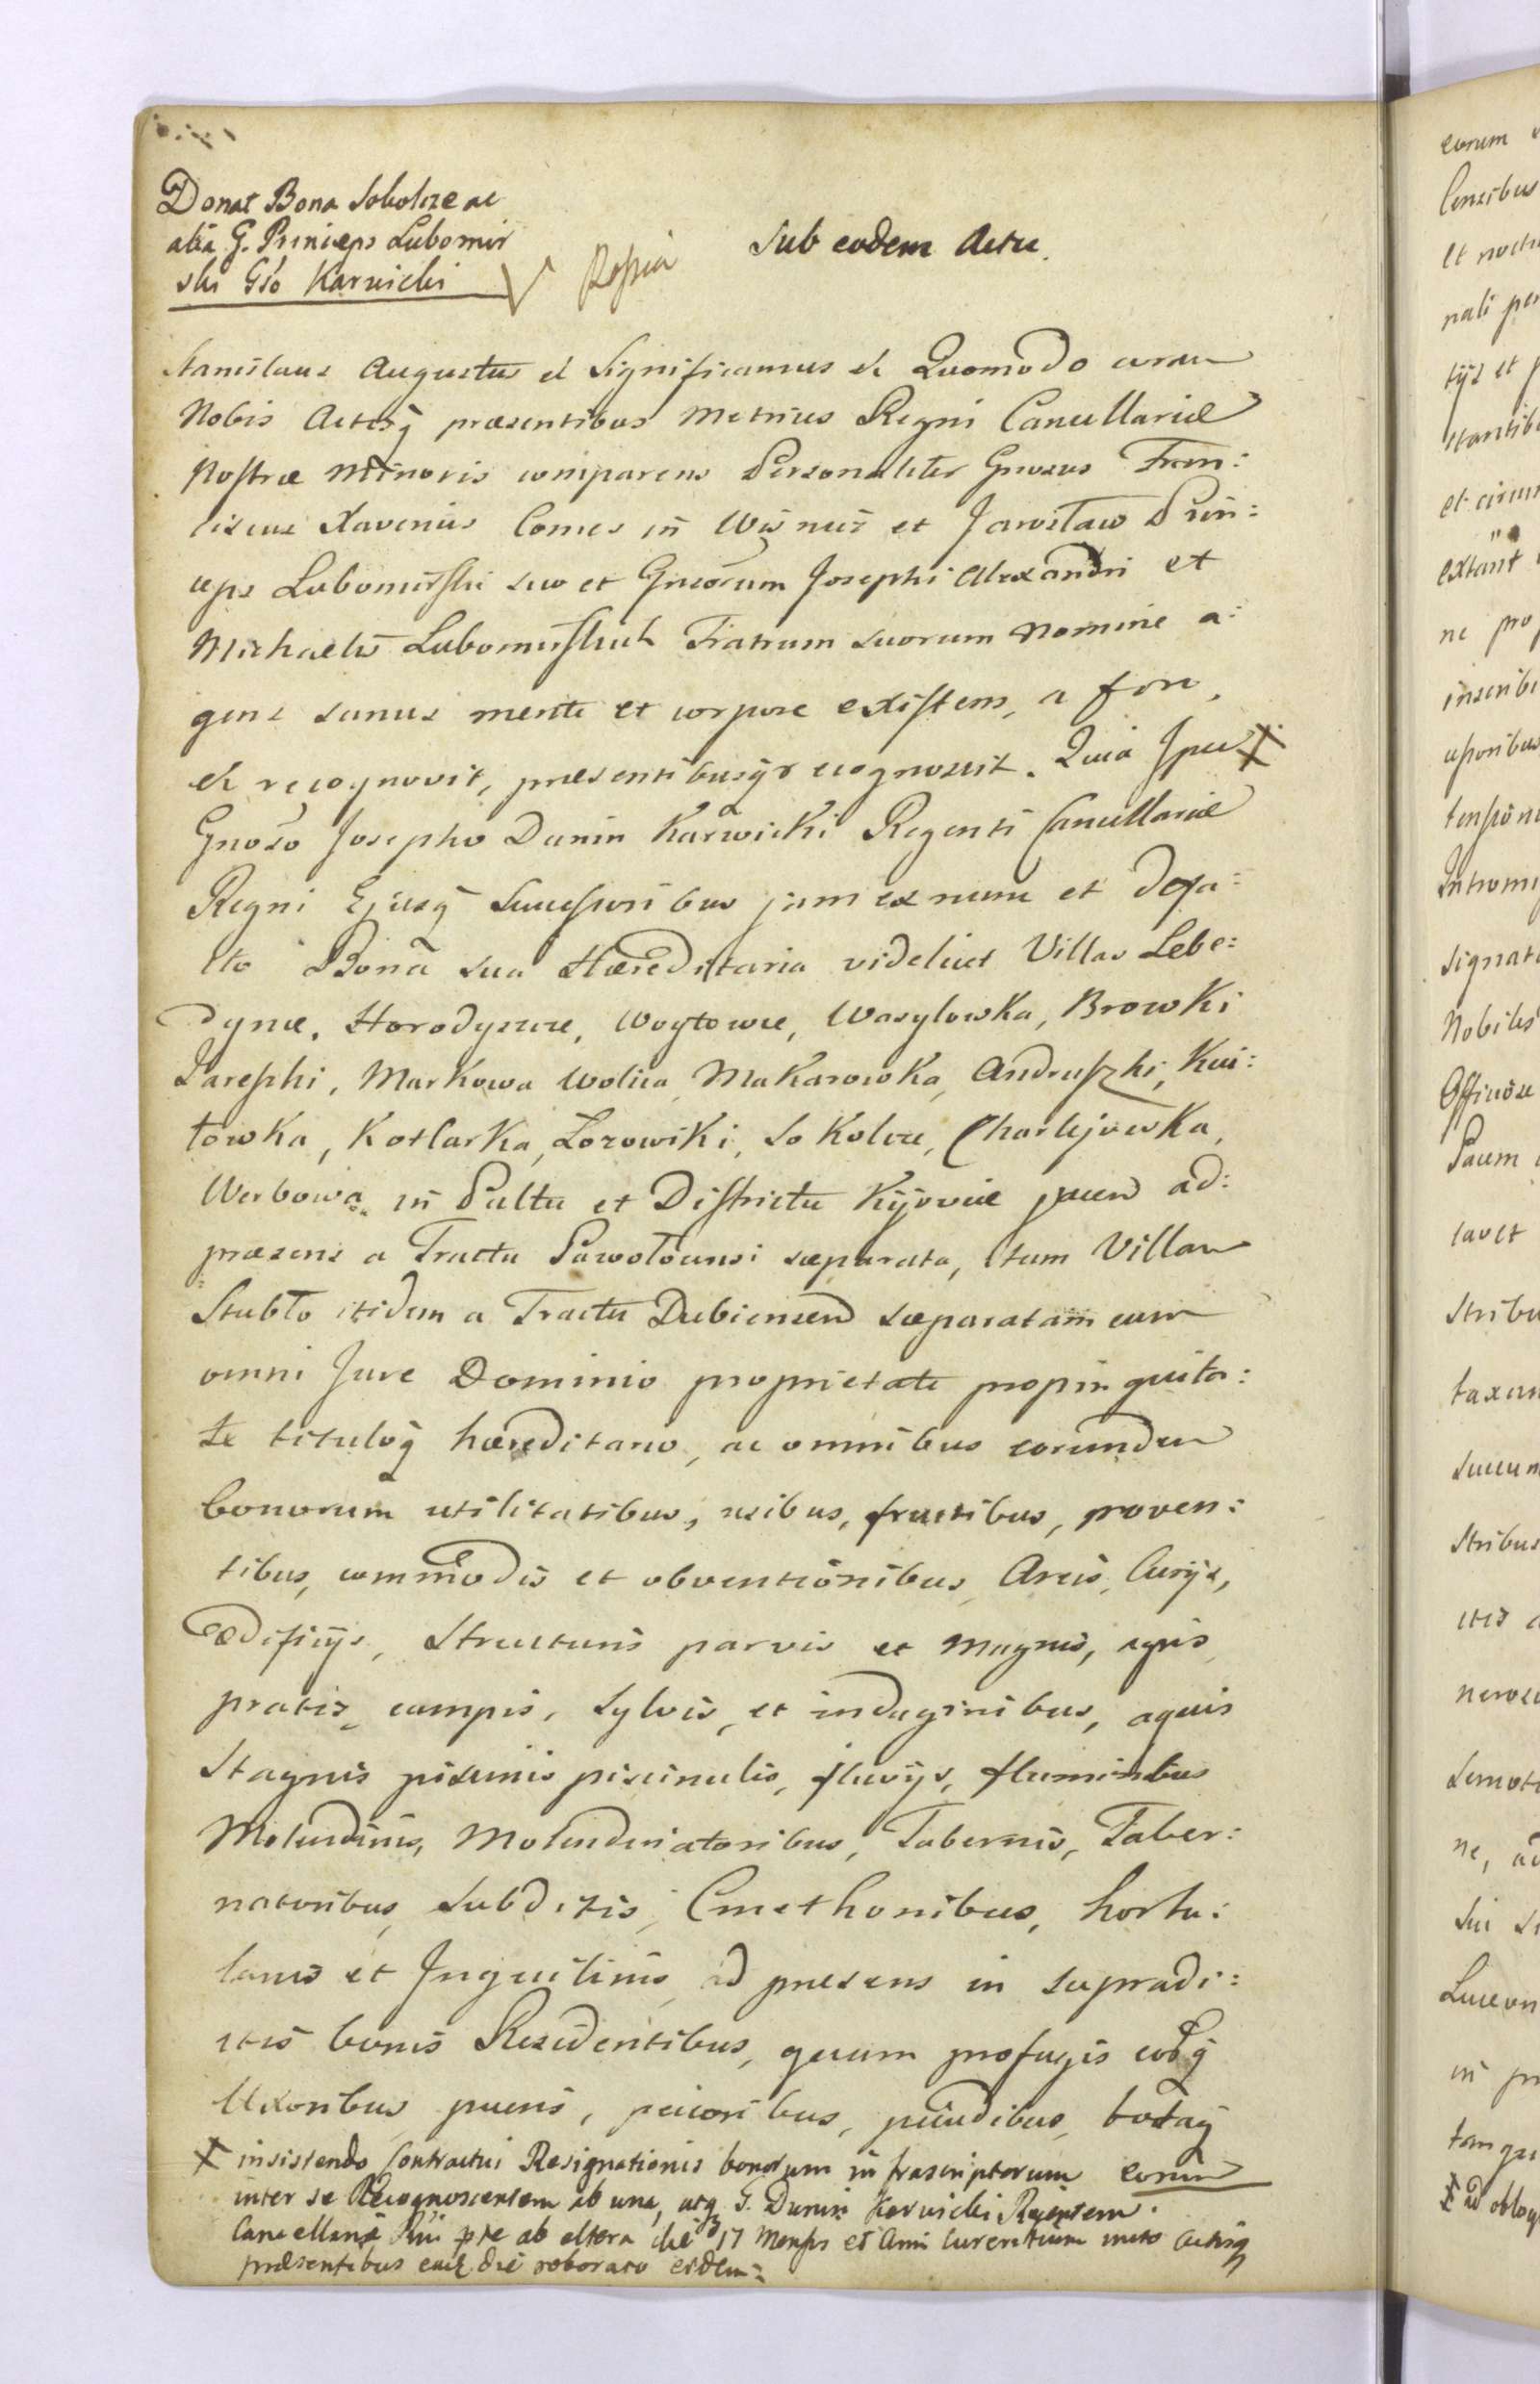 Donat Bona Sokolcze ac
alia G. Princeps Lubomir
ski Gso Karwicki
Sub eodem Actu.
Stanislaus Augustus et Significamus et Quomodo coram
Nobis Actisq praesentibus Metrices Regni Cancellariae
Nostrae Minoris comparens Personaliter Gnosus Fran:
ciscus Xaverius Comes in Wisnicz et Jarosław Prin:
ceps Lubomirski suo et Gnsorum Josephi Alexandri et
Michaelis Lubomirskich Fratrum suorum nomine a:
gens sanus mente et corpore existens, a fon
et recognovit, praesentibusq recognoscit. Quia Ipse X
Gnoso Josepho Dunin Karwicki Regenti Cancellariae
Regni Ejusq Successoribus jam ex nunc et de fa:
cto Bona sua Haereditaria videlicet Villas Lebe:
dynce, Horodyszcze, Woytowce, Wasylowka, Browki
Jareszki, Markowa Wolica Makarowka, Andruszki, Kwi:
towka, Kotlarka, Lozowiki, Sokolcze, Charlejowka,
Werbowa in Pałtu et Districtu Kijoviae jacen ad:
praesens a Tractu Pawołocensi saeparata, tum Villam
Stubło itidem a Tractu Dubiensen saeparatam cum
omni Jure Dominio proprietate propinquita:
te tituloq haereditario, ac omnibus eorundem
bonorum utilitatibus, usibus, fructibus, proven:
tibus, commodis et obventionibus, Areis, Curijs,
aedificijs, structuris parvis et magnis, agris,
pratis, campis, sylvis, et indaginibus, aquis
stagnis piscinis piscinulis, fluvijs, fluminibus
Molendinis, Molendinatoribus, Tabernis, Taber:
natoribus, subditis, Cmethonibus, hortu:
lanis et Inquilinis, ad praesens in supradi:
ctis bonis Residentibus, quam profugis eorq
Uxoribus pueris, pecoribus, pecudibus, totaq
X insistendo Contractui Resignationis bonorum infrascriptorum eorum
inter se Recognoscentem ab una, atq G. Dunin Karwicki Regentem
Cancellariae Rni pte ab altera die 17 Mensis et Anni currentium inito Actisq
praesentibus ead. die roborato eidem: